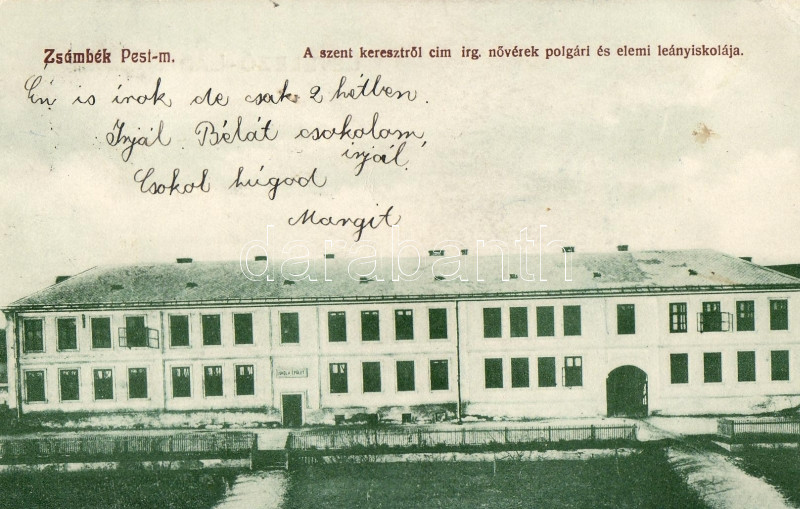 Zsámbék Pest-m.
A szent keresztről cim irg. nővérek polgári és elemi leányiskolája.
Én is írok de csak 2 hétben.
Irjál Bélát csokolom,
irjál.
Csokol húgod
Margit
darabanth